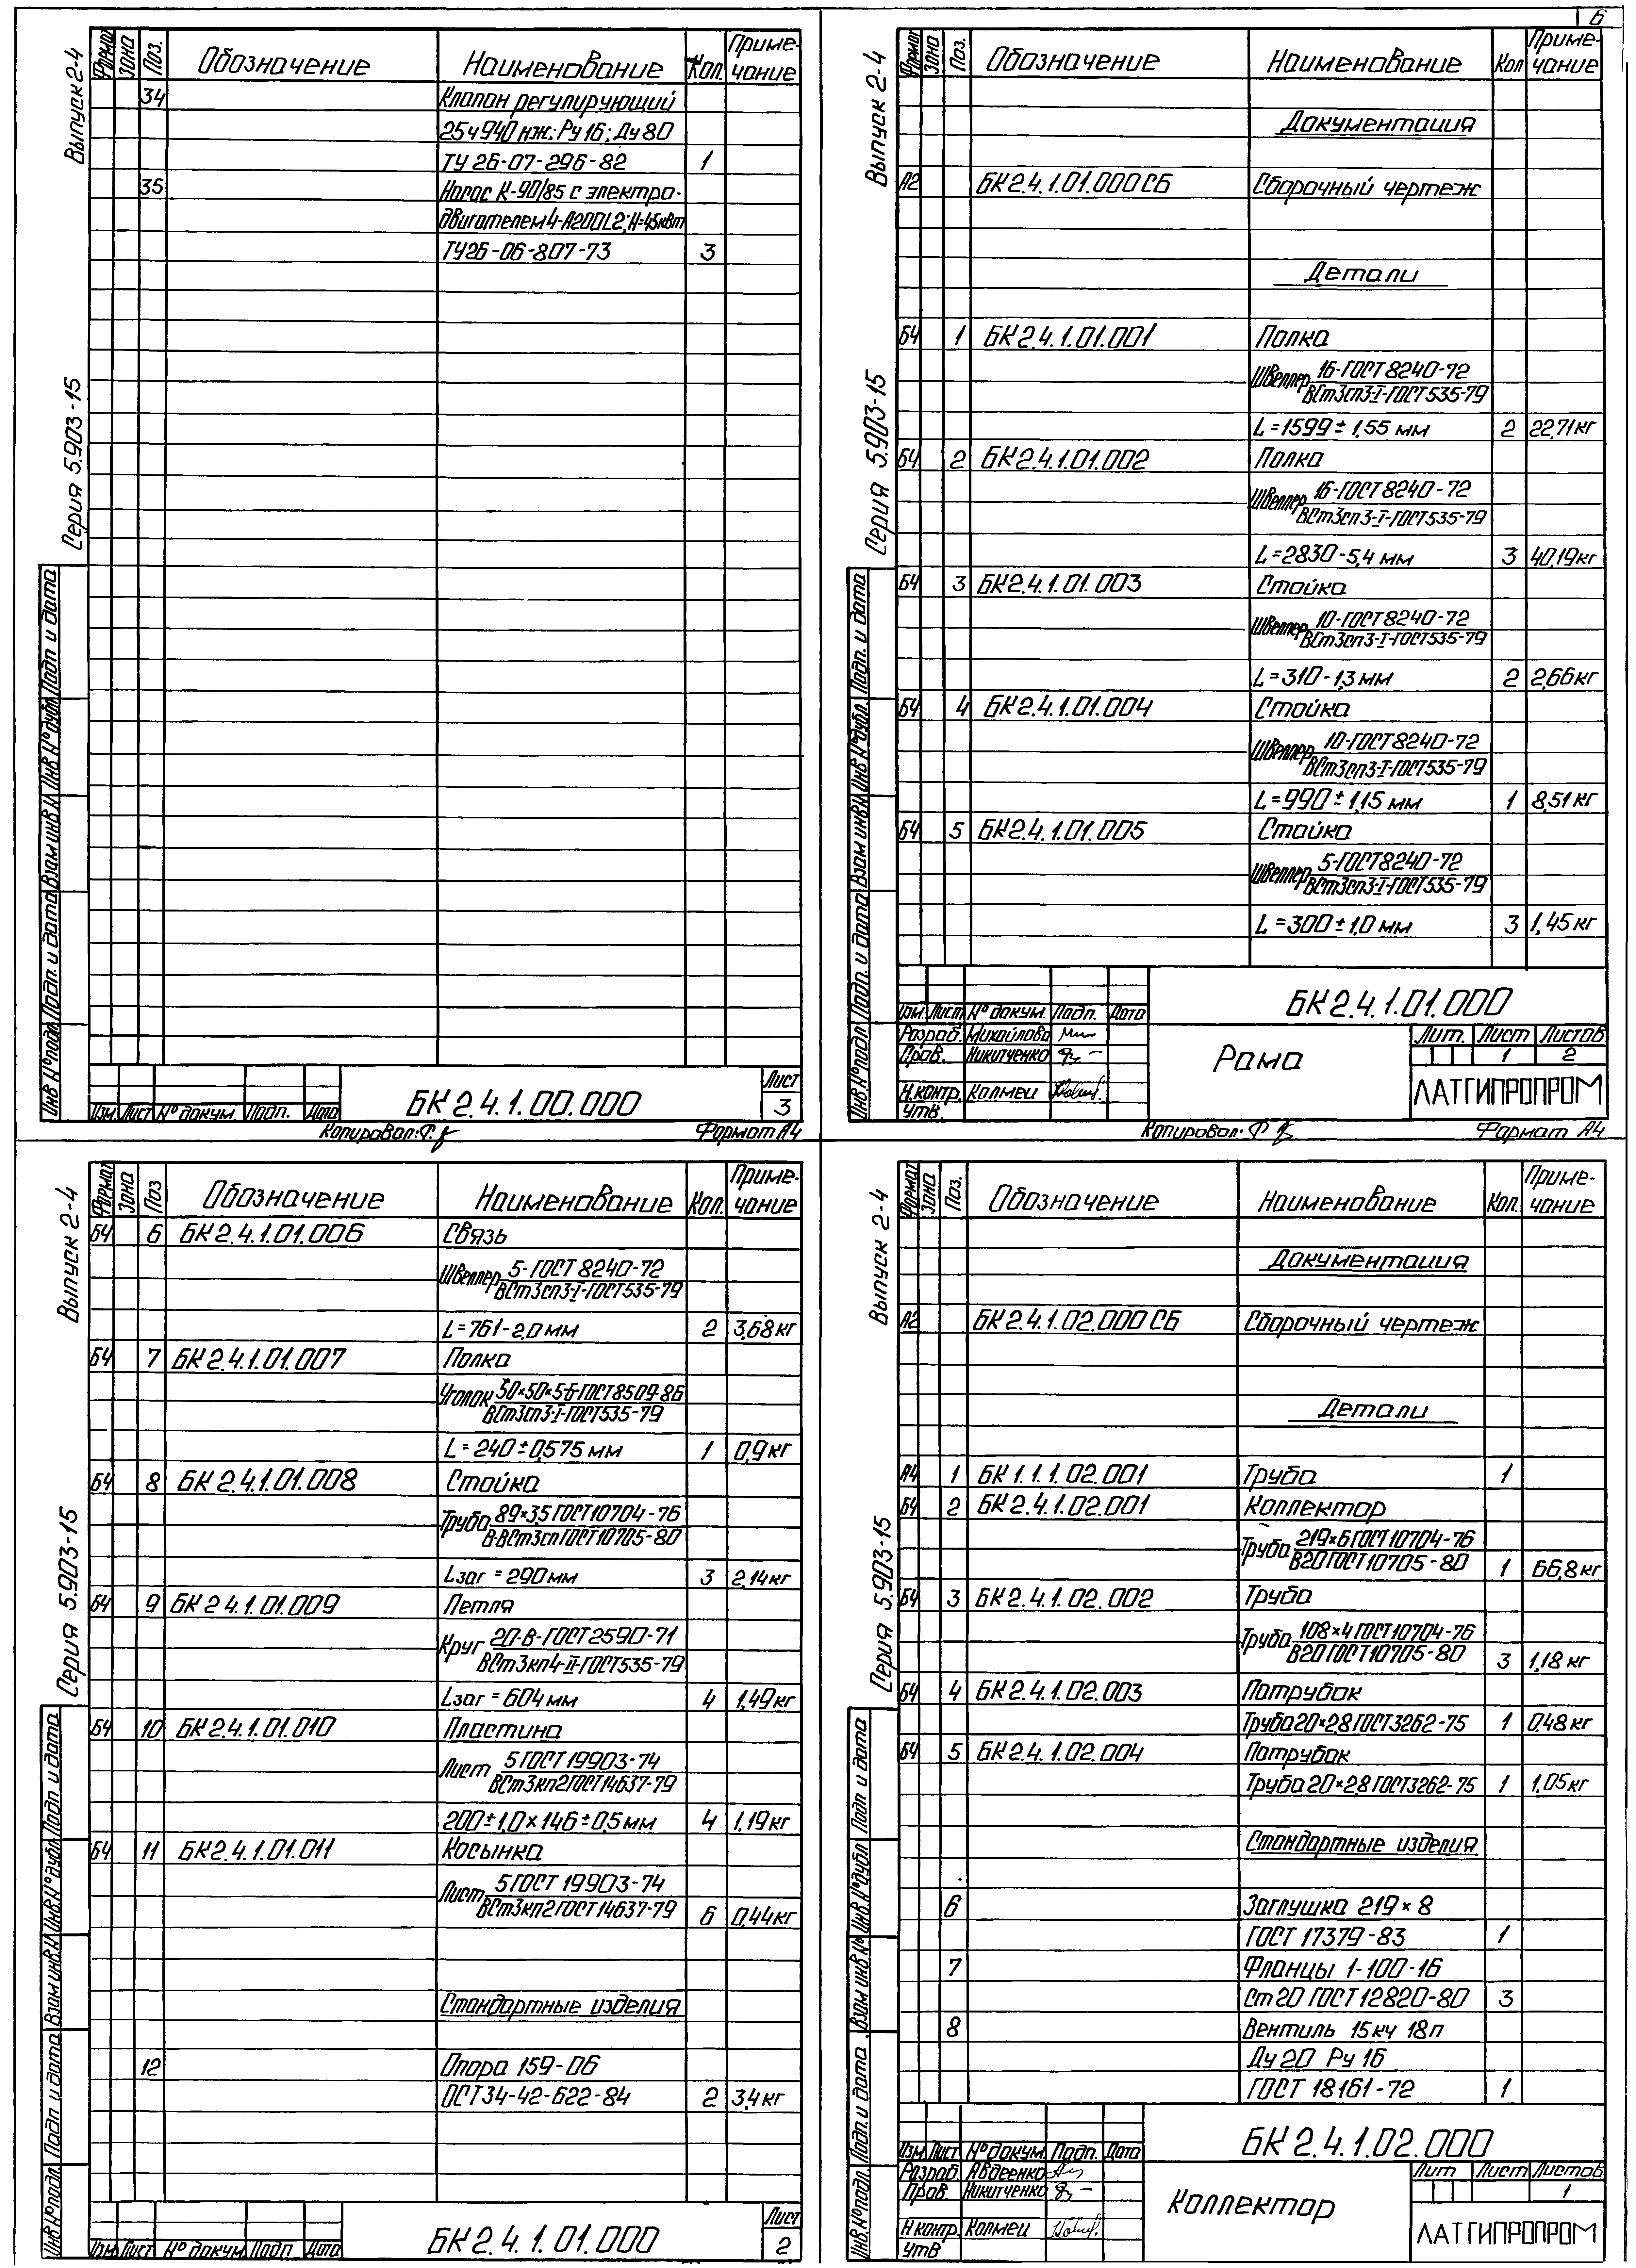 6
Выпуск 2-4
Серия 5.903-15
Формат Зона Поз. Обозначение Наименование Кол. Примечание
34 Клапан регулирующий
25ч940нж; Ру16; Ду80
ТУ 26-07-296-82 1
35 Насос К-90/85 с электро-
двигателем 4-А200L2; N=45кВт
ТУ26-06-807-73 3
Инв.№подл. Подп. и дата Взам инв.№ Инв.№дубл. Подп и дата
Изм. Лист № докум. Подп. Дата
БК 2.4.1.00.000
Лист
3
Копировал:
Формат А4
Выпуск 2-4
Серия 5.903-15
Формат Зона Поз. Обозначение Наименование Кол Примечание
Документация
А2 БК2.4.1.01.000СБ Сборочный чертеж
Детали
БЧ 1 БК2.4.1.01.001 Полка
Швеллер 16-ГОСТ 8240-72
ВСт3сп3-I-ГОСТ535-79
L=1599±1,55 мм 2 22,71кг
БЧ 2 БК2.4.1.01.002 Полка
Швеллер 16-ГОСТ 8240-72
ВСт3сп3-I-ГОСТ535-79
L=2830-5,4 мм 3 40,19кг
БЧ 3 БК2.4.1.01.003 Стойка
Швеллер 10-ГОСТ 8240-72
ВСт3сп3-I-ГОСТ535-79
L=310-1,3 мм 2 2,66кг
БЧ 4 БК2.4.1.01.004 Стойка
Швеллер 10-ГОСТ8240-72
ВСт3сп3-I-ГОСТ535-79
L=990±1,15 мм 1 8,51 кг
БЧ 5 БК2.4.1.01.005 Стойка
Швеллер 5-ГОСТ8240-72
ВСт3сп3-I-ГОСТ535-79
L=300±1,0 мм 3 1,45кг
Инв.№подл Подп. и дата Взам инв.№ Инв.№дубл. Подп. и дата
Изм. Лист № докум. Подп. Дата
Разраб. Михайлова
Пров. Никитченко
Н.контр. Колмец
Утв.
БК 2.4.1.01.000
Рама
Лит. Лист Листов
1 2
ЛАТГИПРОПРОМ
Копировал:
Формат А4
Выпуск 2-4
Серия 5.903-15
Формат Зона Поз Обозначение Наименование Кол. Примечание
БЧ 6 БК2.4.1.01.006 Связь
Швеллер 5-ГОСТ 8240-72
ВСт3сп3-I-ГОСТ535-79
L=761-2,0 мм 2 3,68кг
БЧ 7 БК2.4.1.01.007 Полка
Уголок 50×50×5-Б-ГОСТ8509-86
ВСт3сп3-I-ГОСТ535-79
L=240±0,575 мм 1 0,9кг
БЧ 8 БК2.4.1.01.008 Стойка
Труба 89×3,5 ГОСТ10704-76
В-ВСт3сп ГОСТ10705-80
Lзаг=290мм 3 2,14кг
БЧ 9 БК2.4.1.01.009 Петля
Круг 20-В-ГОСТ2590-71
ВСт3кп4-II-ГОСТ535-79
Lзаг=604мм 4 1,49кг
БЧ 10 БК2.4.1.01.010 Пластина
Лист 5 ГОСТ 19903-74
ВСт3кп2 ГОСТ14637-79
200±1,0×146±0,5мм 4 1,19кг
БЧ 11 БК2.4.1.01.011 Косынка
Лист 5 ГОСТ 19903-74
ВСт3кп2 ГОСТ 14637-79
6 0,44кг
Стандартные изделия
12 Опора 159-06
ОСТ34-42-622-84 2 3,4кг
Инв.№подл. Подп и дата Взам инв.№ Инв.№дубл. Подп и дата
Изм. Лист № докум. Подп Дата
БК 2.4.1.01.000
Лист
2
Выпуск 2-4
Серия 5.903-15
Формат Зона Поз. Обозначение Наименование Кол. Примечание
Документация
А2 БК2.4.1.02.000СБ Сборочный чертеж
Детали
А4 1 БК 1.1.1.02.001 Труба 1
БЧ 2 БК2.4.1.02.001 Коллектор
Труба 219×6 ГОСТ10704-76
В20 ГОСТ10705-80 1 66,8кг
БЧ 3 БК2.4.1.02.002 Труба
Труба 108×4 ГОСТ10704-76
В20 ГОСТ10705-80 3 1,18 кг
БЧ 4 БК2.4.1.02.003 Патрубок
Труба20×2,8 ГОСТ3262-75 1 0,48 кг
БЧ 5 БК2.4.1.02.004 Патрубок
Труба 20×2,8 ГОСТ3262-75 1 1,05кг
Стандартные изделия
6 Заглушка 219×8
ГОСТ 17379-83 1
7 Фланцы 1-100-16
Ст20 ГОСТ12820-80 3
8 Вентиль 15кч 18п
Ду 20 Ру 16
ГОСТ 18161-72 1
Инв.№подл. Подп. и дата Взам инв.№ Инв.№дубл Подп и дата
Изм Лист № докум. Подп. Дата
Разраб. Авдеенко
Пров. Никитченко
Н контр. Колмец
Утв
БК 2.4.1.02.000
Коллектор
Лит Лист Листов
1
ЛАТГИПРОПРОМ